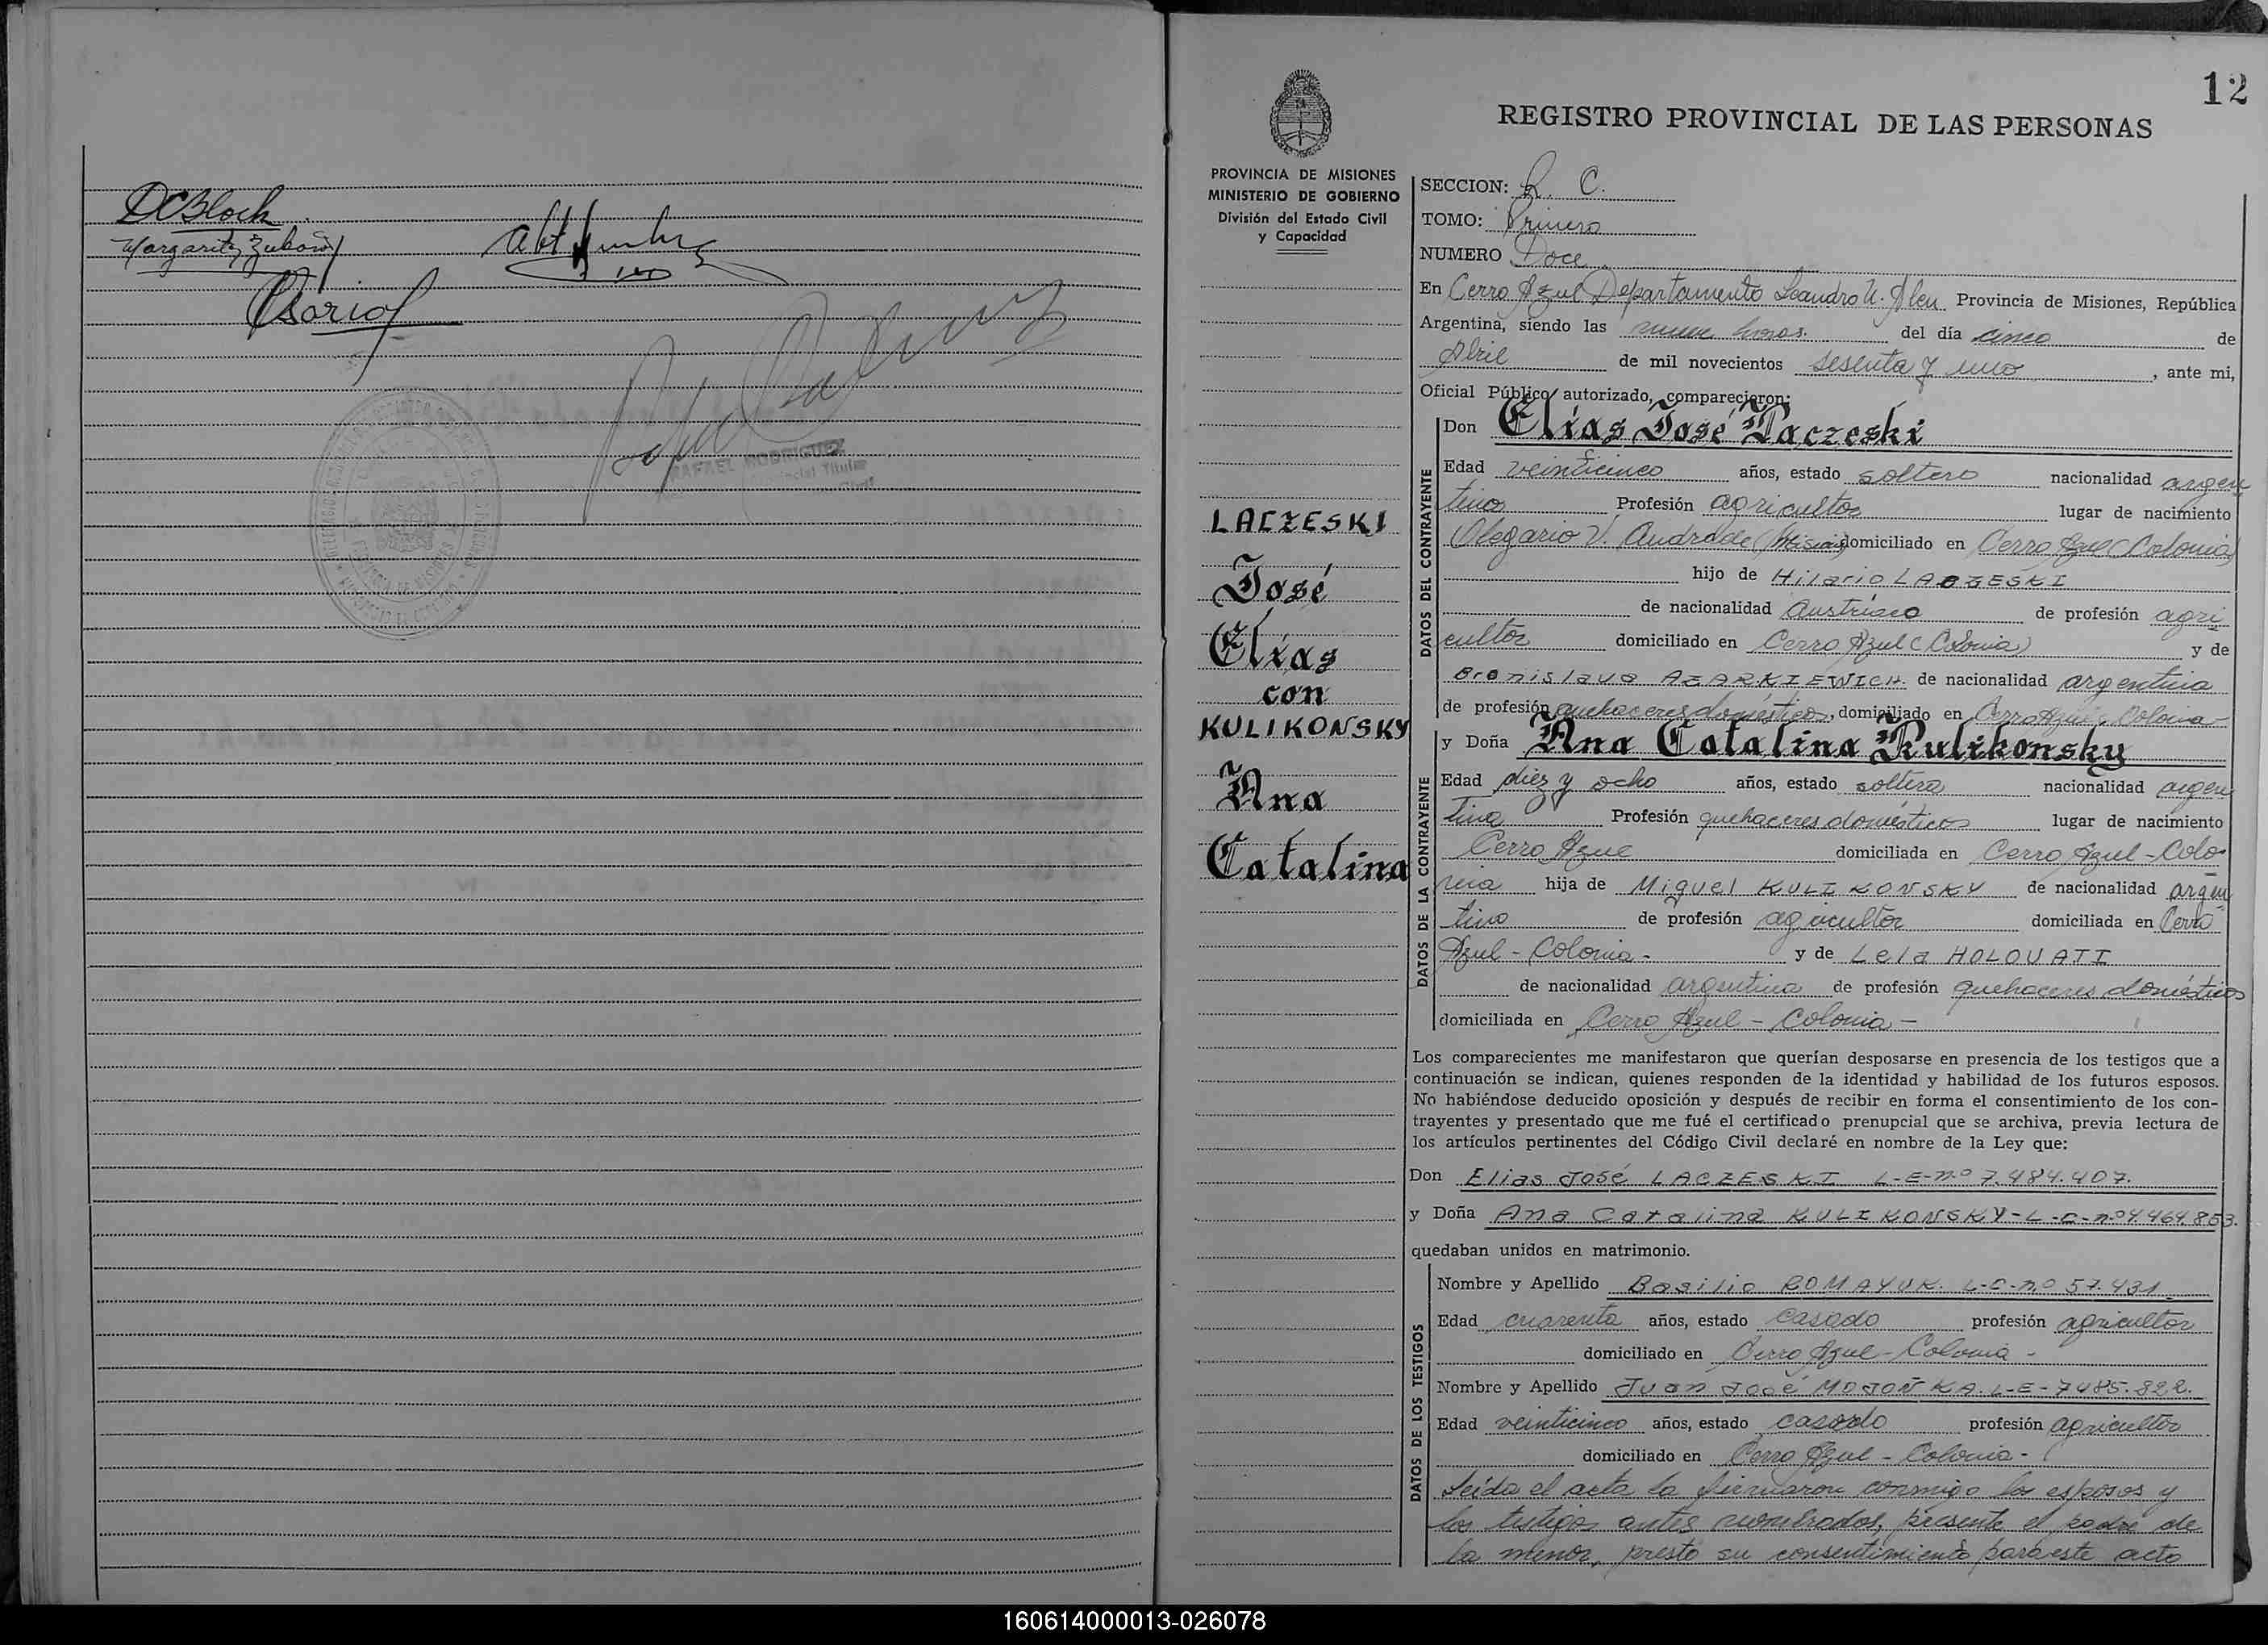 DCBlock
Margarita Zubow
Osorio
RAFAEL RODRIGUEZ
12
REGISTRO PROVINCIAL DE LAS PERSONAS
PROVINCIA DE MISIONES
MINISTERIO DE GOBIERNO
División del Estado Civil
y Capacidad
LACZESKI
José
Elías
con
KULIKONSKY
Ana
Catalina
SECCION: R. C.
TOMO: Primero
NUMERO Doce
En Cerro Azul Departamento Leandro N. Alem Provincia de Misiones, República
Argentina, siendo las nueve horas. del día cinco de
Abril de mil novecientos sesenta y uno, ante mi,
Oficial Público autorizado, comparecieron:
DATOS DEL CONTRAYENTE
Don Elías José Laczeski
Edad veinticinco años, estado soltero nacionalidad argen
tino Profesión agricultor lugar de nacimiento
Olegario V. Andrade (Misiones) domiciliado en Cerro Azul (Colonia)
hijo de Hilario LACZESKI
de nacionalidad Austríaco de profesión agri
cultor domiciliado en Cerro Azul (Colonia) y de
Bronislava AZARKIEWICH. de nacionalidad argentina
de profesión quehaceres domésticos, domiciliado en Cerro Azul - Colonia -
DATOS DE LA CONTRAYENTE
y Doña Ana Catalina Kulikonsky
Edad diez y ocho años, estado soltera nacionalidad argen
tina Profesión quehaceres domésticos lugar de nacimiento
Cerro Azul domiciliada en Cerro Azul - Colo-
nia hija de Miguel KULIKONSKY de nacionalidad argen
tino de profesión agricultor domiciliada en Cerro
Azul - Colonia - y de Lela HOLOVATI
de nacionalidad argentina de profesión quehaceres domésticos
domiciliada en Cerro Azul - Colonia -
Los comparecientes me manifestaron que querían desposarse en presencia de los testigos que a
continuación se indican, quienes responden de la identidad y habilidad de los futuros esposos.
No habiéndose deducido oposición y después de recibir en forma el consentimiento de los con-
trayentes y presentado que me fué el certificado prenupcial que se archiva, previa lectura de
los artículos pertinentes del Código Civil declaré en nombre de la Ley que:
Don Elias José LACZESKI L-E-nº 7.484.407.
y Doña Ana Catalina KULIKONSKY - L-C-nº 4.464.853.
quedaban unidos en matrimonio.
DATOS DE LOS TESTIGOS
Nombre y Apellido Basilio ROMAYUK. L-C-nº 57.431
Edad cuarenta años, estado casado profesión agricultor
domiciliado en Cerro Azul - Colonia -
Nombre y Apellido Juan José MOJOÑKA. L-E- 7485.822.
Edad veinticinco años, estado casado profesión agricultor
domiciliado en Cerro Azul - Colonia -
Leída el acta la firmaron conmigo los esposos y
los testigos antes nombrados, presente el padre de
la menor, prestó su consentimiento para este acto
160614000013-026078